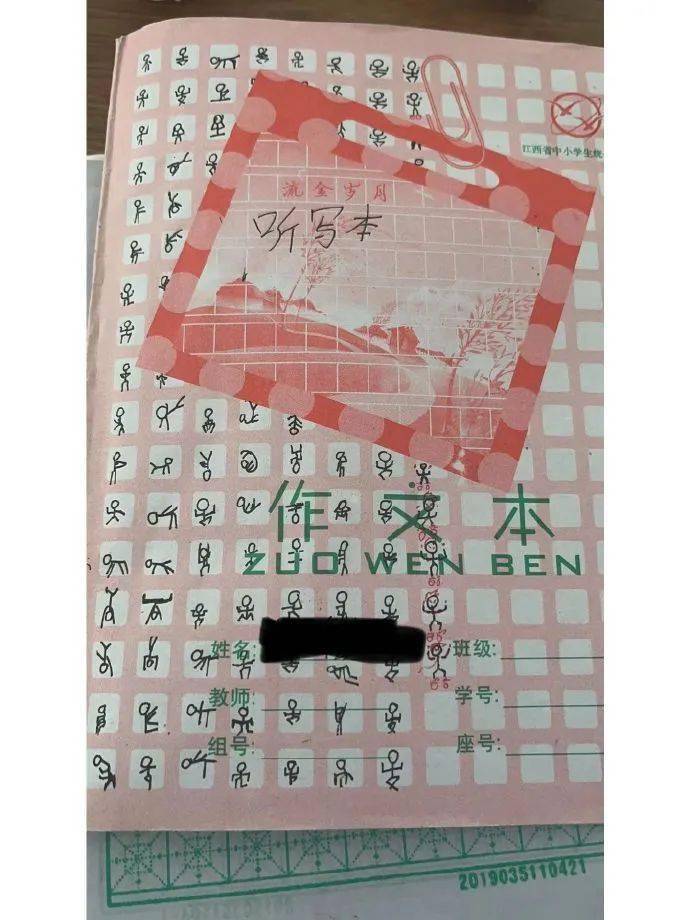 江西省中小学生统
流金岁月
听写本
作文本
ZUO WEN BEN
姓名:
班级:
教师:
学号:
组号:
座号:
2019035110421